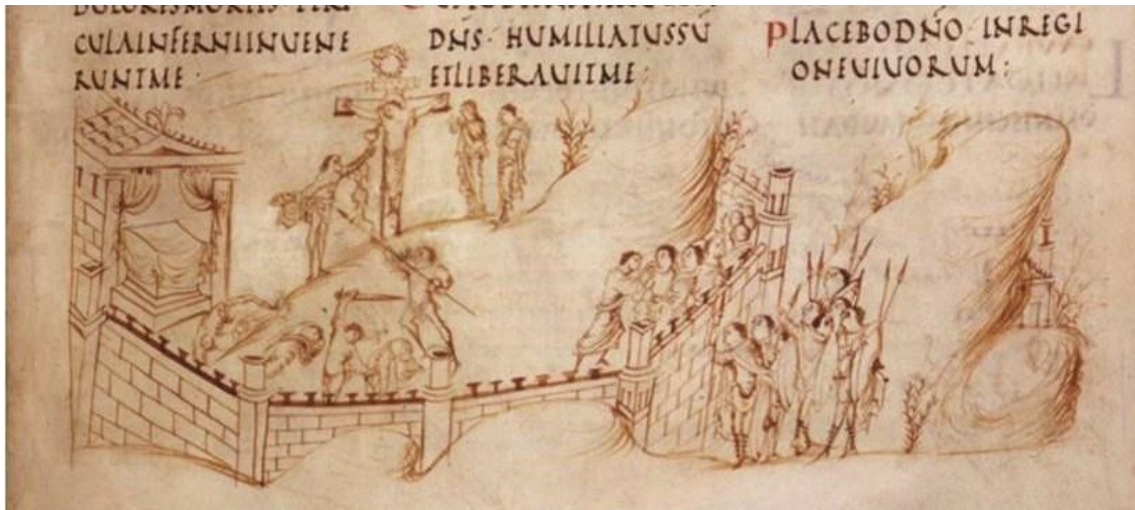 DOLORISMORTIS PERI
CULAINFERNIINUENE
RUNTME·
DN̄S· HUMILIATUSSŪ
ETLIBERAUITME:
PLACEBODN̄O· INREGI
ONEUIUORUM: